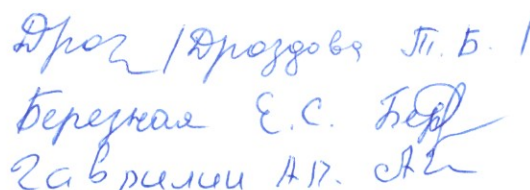 Дроз /Дроздова Т.Б. /
Березная Е.С. Бер
Гаврилин А.П.